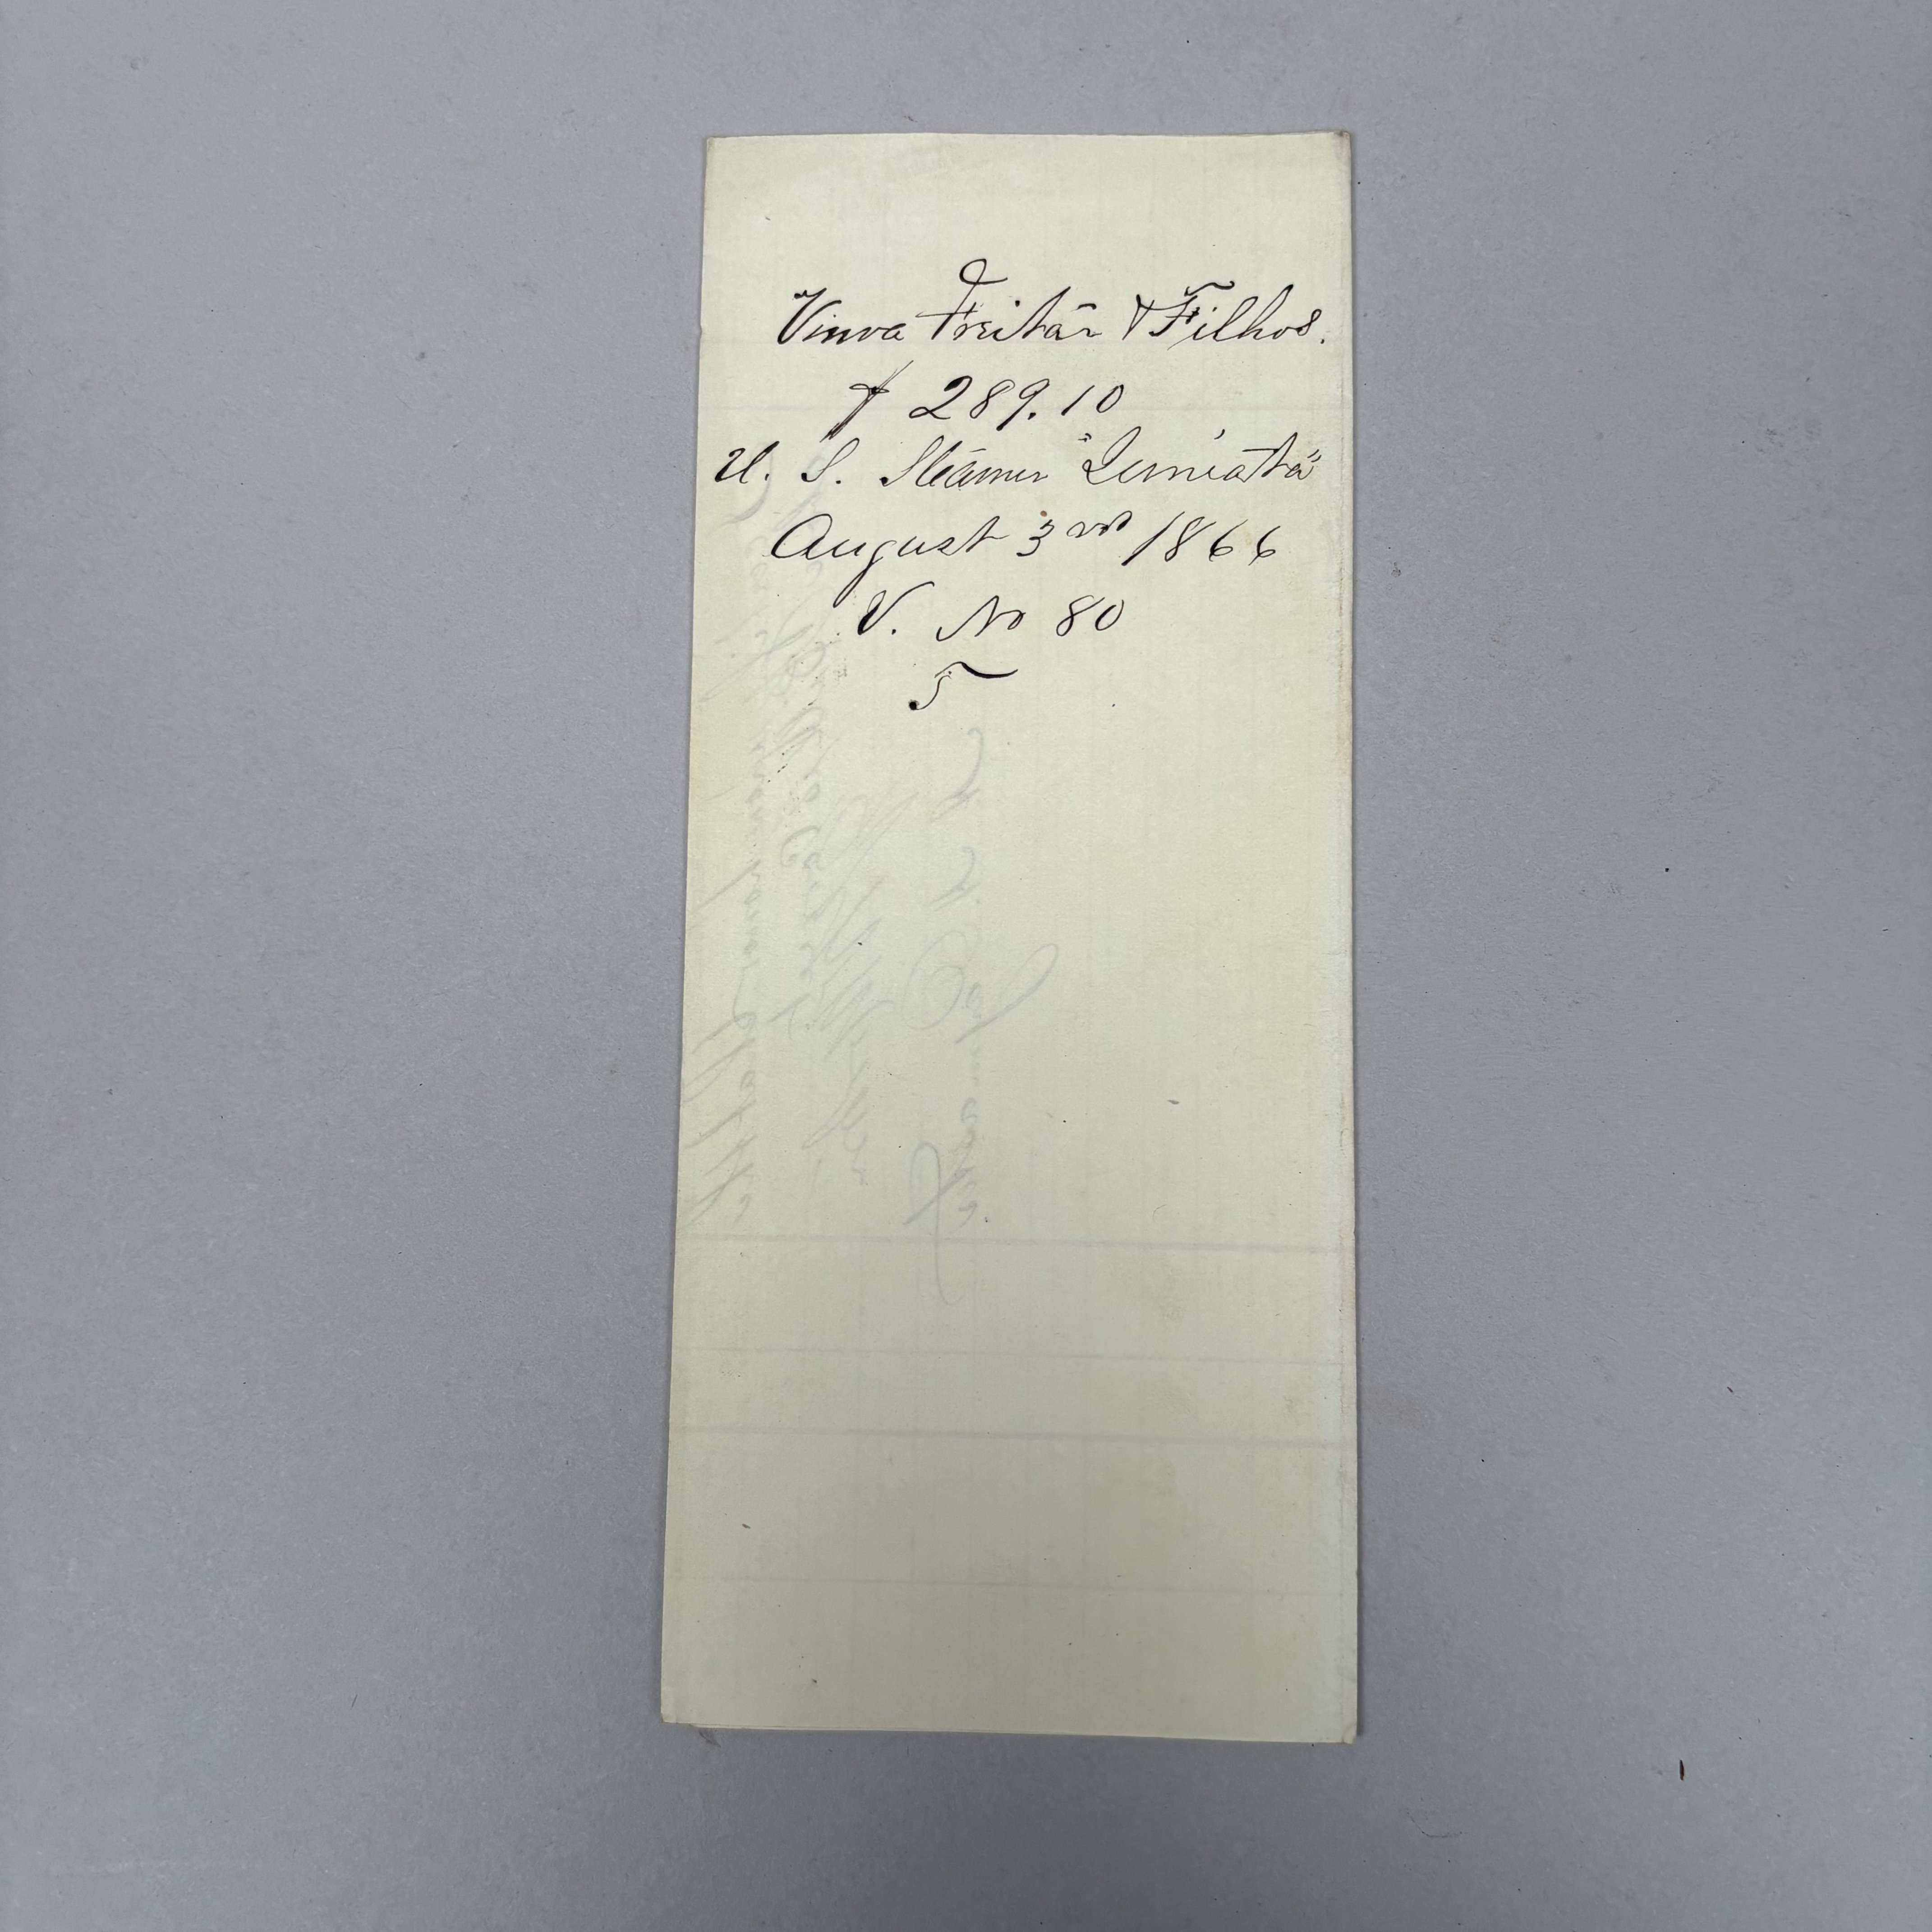 Viuva Freitas & Filhos.
$ 289.10
U. S. Steamer "Juniata"
August 3rd 1866
V. No 80
5